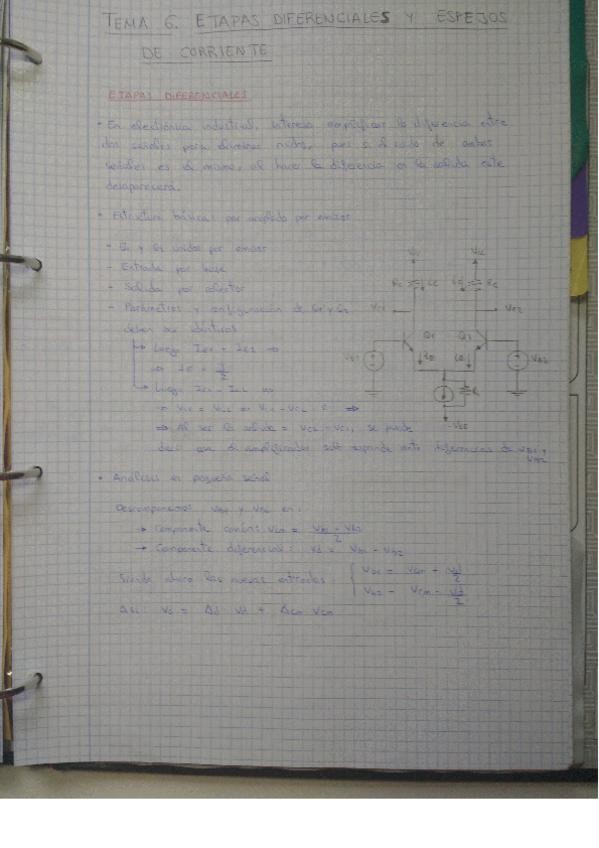 TEMA 6. ETAPAS DIFERENCIALES Y ESPEJOS
DE CORRIENTE
ETAPAS DIFERENCIALES
• En electrónica industrial, interesa amplificar la diferencia entre
dos señales para eliminar ruidos, pues si el ruido de ambas
señales es el mismo, al hacer la diferencia en la salida este
desaparecerá.
• Estructura básica: par acoplado por emisor
- Q1 y Q2 unidos por emisor
- Entrada por base
- Salida por colector
- Parámetros y configuración de Q1 y Q2
deben ser idénticos
Luego IE1 = IE2 ⇒
⇒ IE = I/2
Luego IC1 = IC2 ⇒
⇒ Al ser la salida = VC2 - VC1, se puede
decir que el amplificador solo responde ante diferencias de VB1 y
VB2
VCC VCC
RC iC iC RC
VC1 VC2
Q1 Q2
VB1 VB2
-VEE
• Análisis en pequeña señal
Descomponemos VB1 y VB2 en:
→ Componente común: Vcm =
→ Componente diferencial: Vd = Vb1 - Vb2
Siendo ahora las nuevas entradas: Vb1 = Vcm + Vd/2
Vb2 = Vcm - Vd/2
Así: Vo = Ad Vd + Acm Vcm